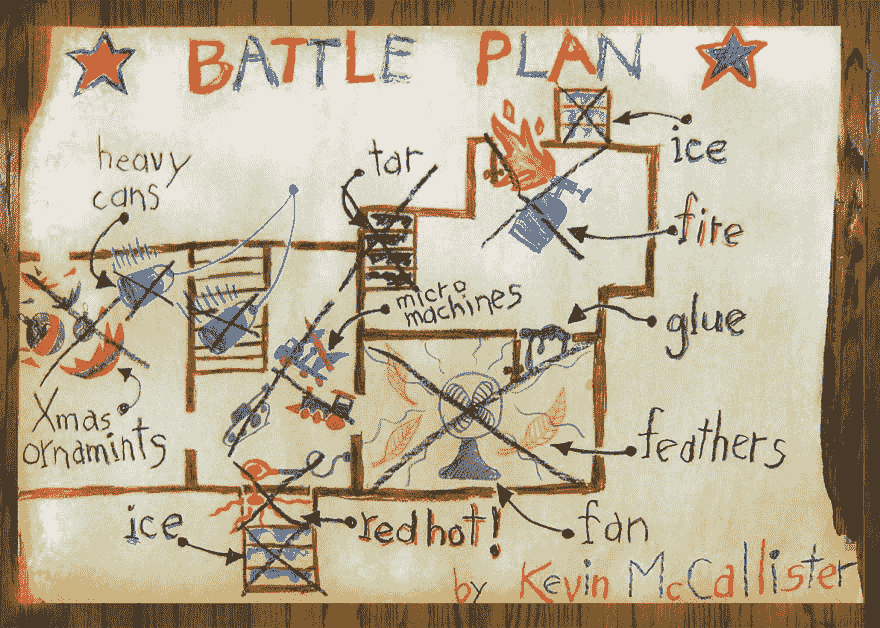 BATTLE PLAN
heavy
cans
tar
ice
fire
micro
machines
glue
Xmas
ornamints
feathers
ice
red hot!
fan
by Kevin McCallister